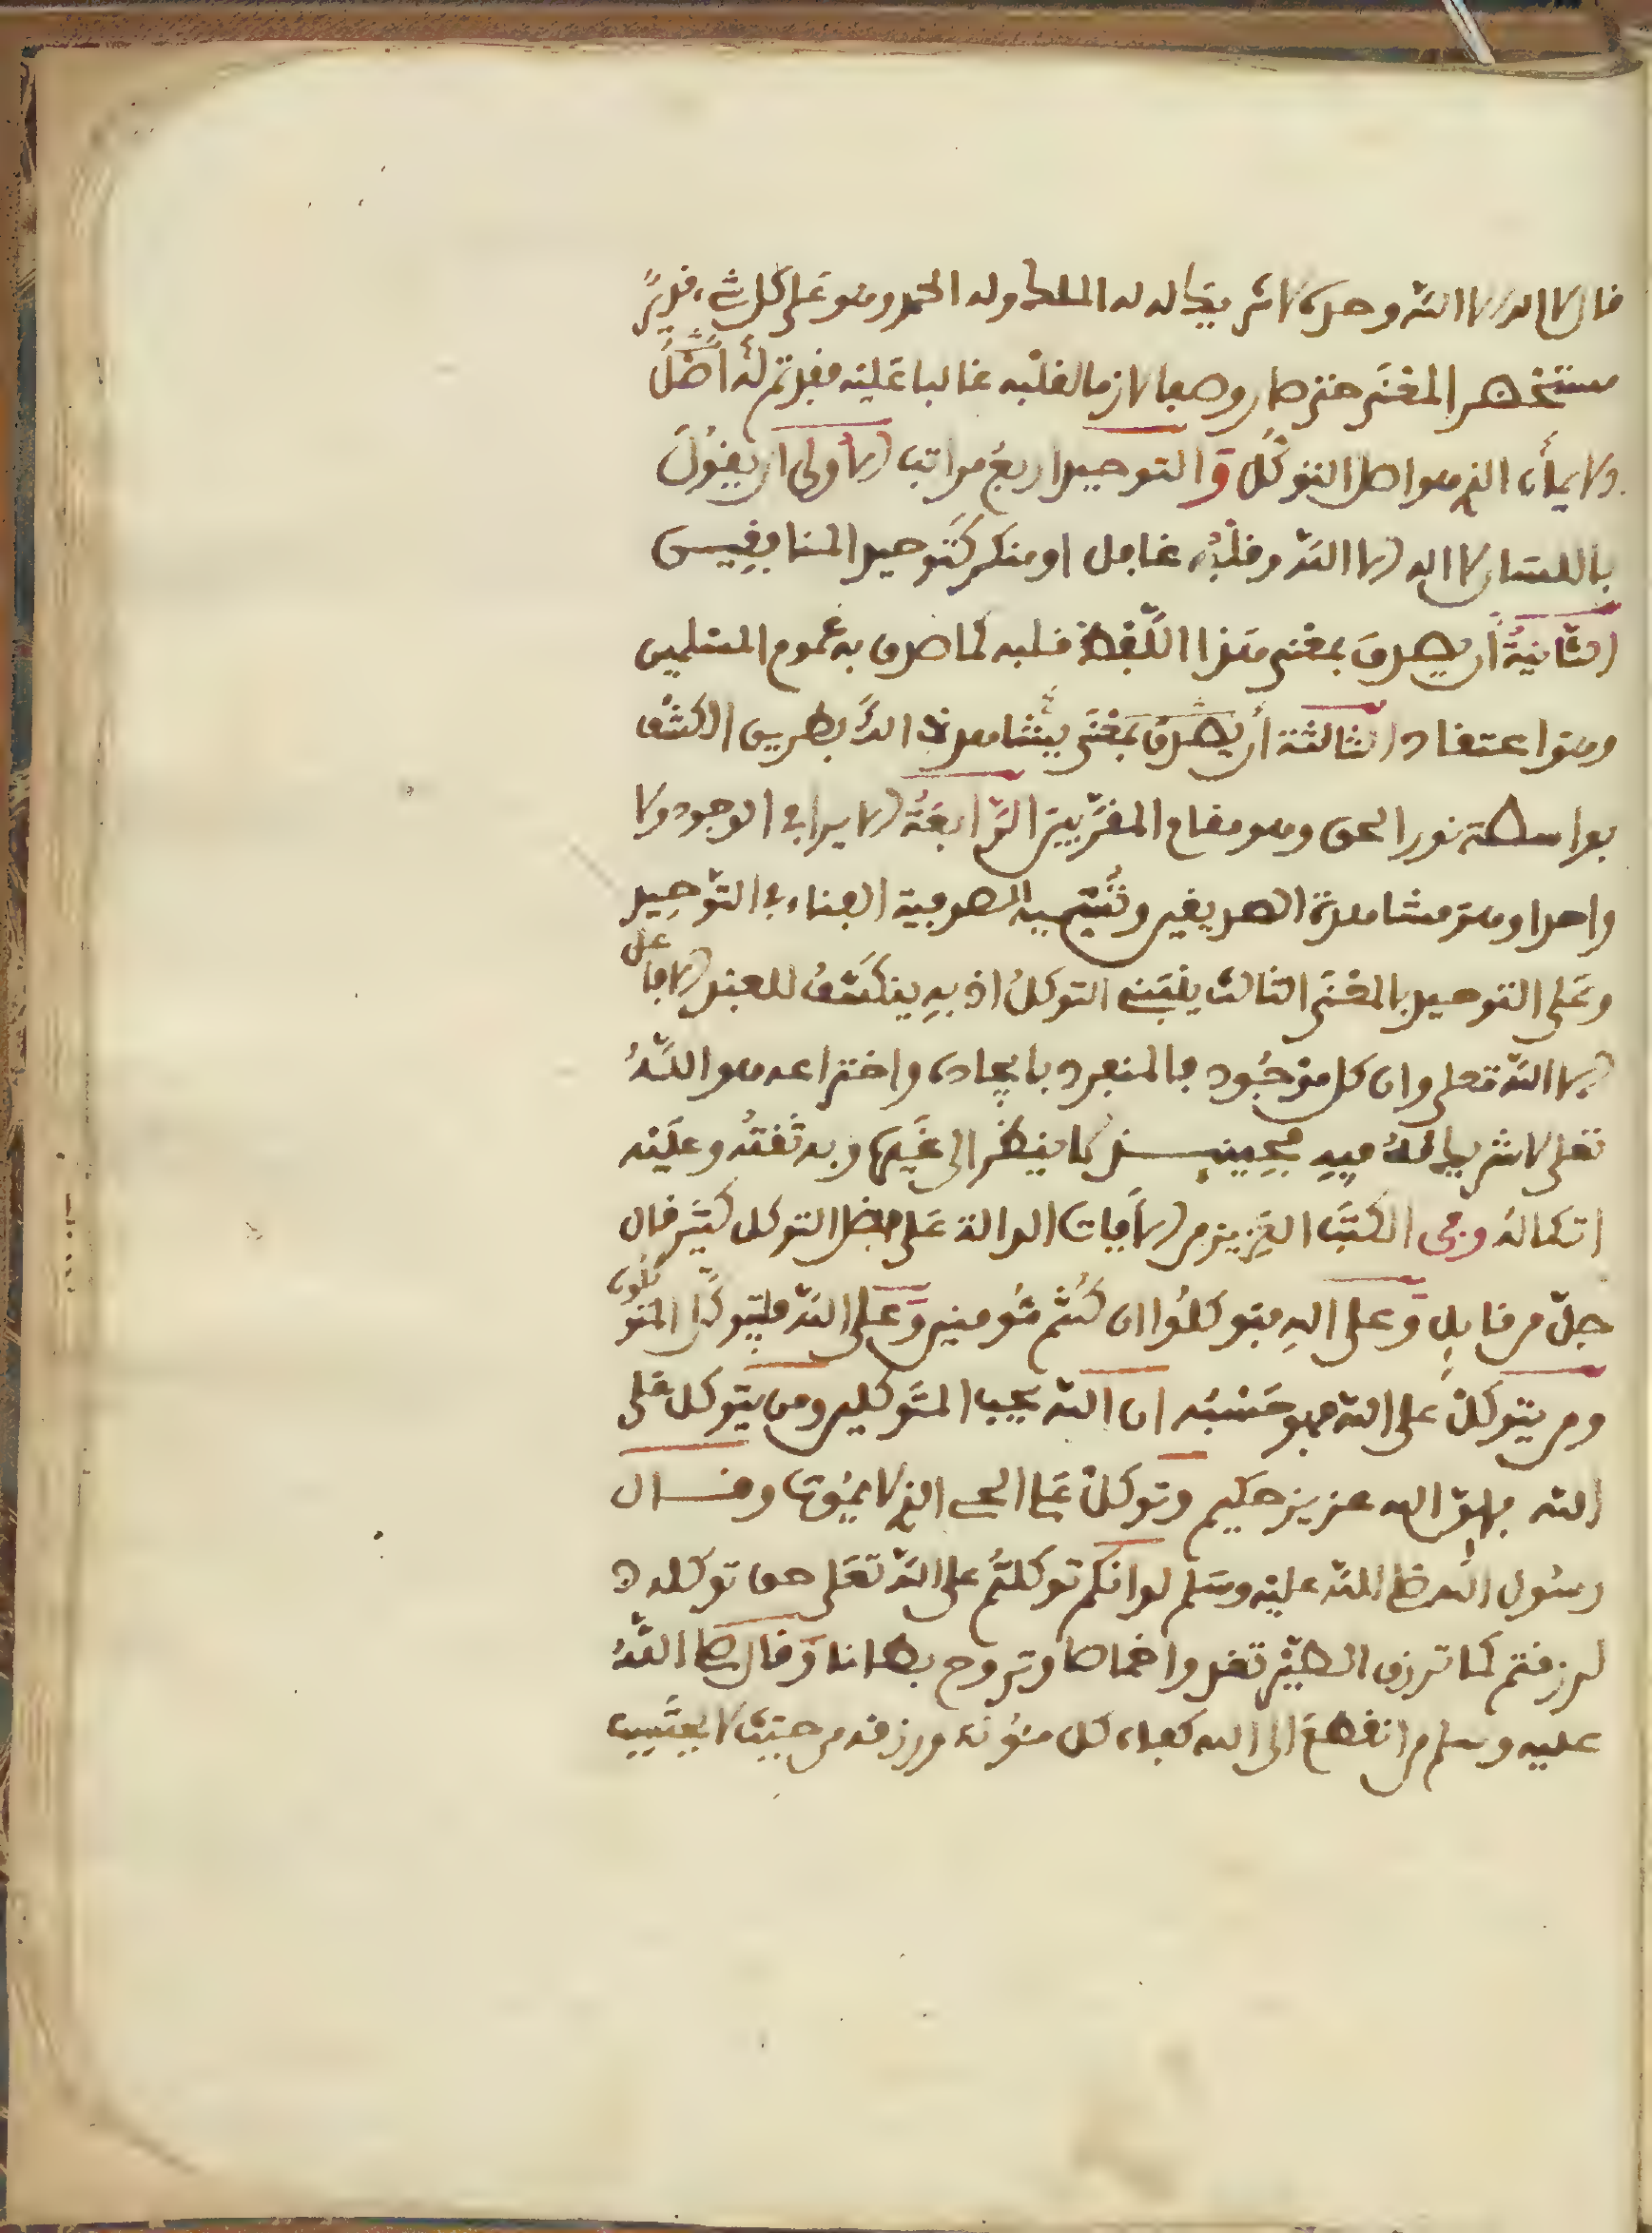 قال لا اله الا الله وحده لا شريك له له الملك وله الحمد وهو على كل شيء قدير
مستحضر المعنى حتى صار وصفا لازما لقلبه غالبا عليه فقد تم له أصل
ولايمان الذي هو اصل التوكل و التوحيد اربع مراتب الاولى ان يقول
باللسان لا اله الا الله وقلبه غافل او منكر كتوحيد المنافقين
الثانية أن يصدق بمعنى هذا اللفظ قلبه كما صدق به عموم المسلمين
وهو اعتقاد الثالثة أن يصدق بمعنى يشاهد ذالك بطريق الكشف
بواسطة نور الحق وهو مقام المقربين الرابعة الا يرا في الوجود الا
واحدا وهو مشاهدة الصديقين وتسميه الصوفية الفناء في التوحيد
وعلى التوحيد بالمعنى الثالث ينبني التوكل اذ به ينكشف للعبد الا فاعل
الا الله تعلى وان كل موجود فالمنفرد بايجاده واختراعه هو الله
تعلى لا شريك له فيه فحينئذ لا ينظر الى غيره وبه ثقته وعليه
اتكاله وفي الكتب العزيز من الايات الدالة على فضل التوكل كثير قال
جل من قايل وعلى الله فتوكلوا ان كنتم مومنين وعلى الله فليتوكل المتوكلون
ومن يتوكل على الله فهو حسبه ان الله يحب المتوكلين ومن يتوكل على
الله فإن الله عزيز حكيم وتوكل على الحي الذي لا يموت وقال
رسول الله صلى الله عليه وسلم لو انكم توكلتم على الله تعلى حق توكله
لرزقتم كما ترزق الطير تغدوا خماصا وتروح بطانا وقال صلى الله
عليه وسلم من انقطع الى الله كفاه كل مئونة ورزقه من حيث لا يحتسب